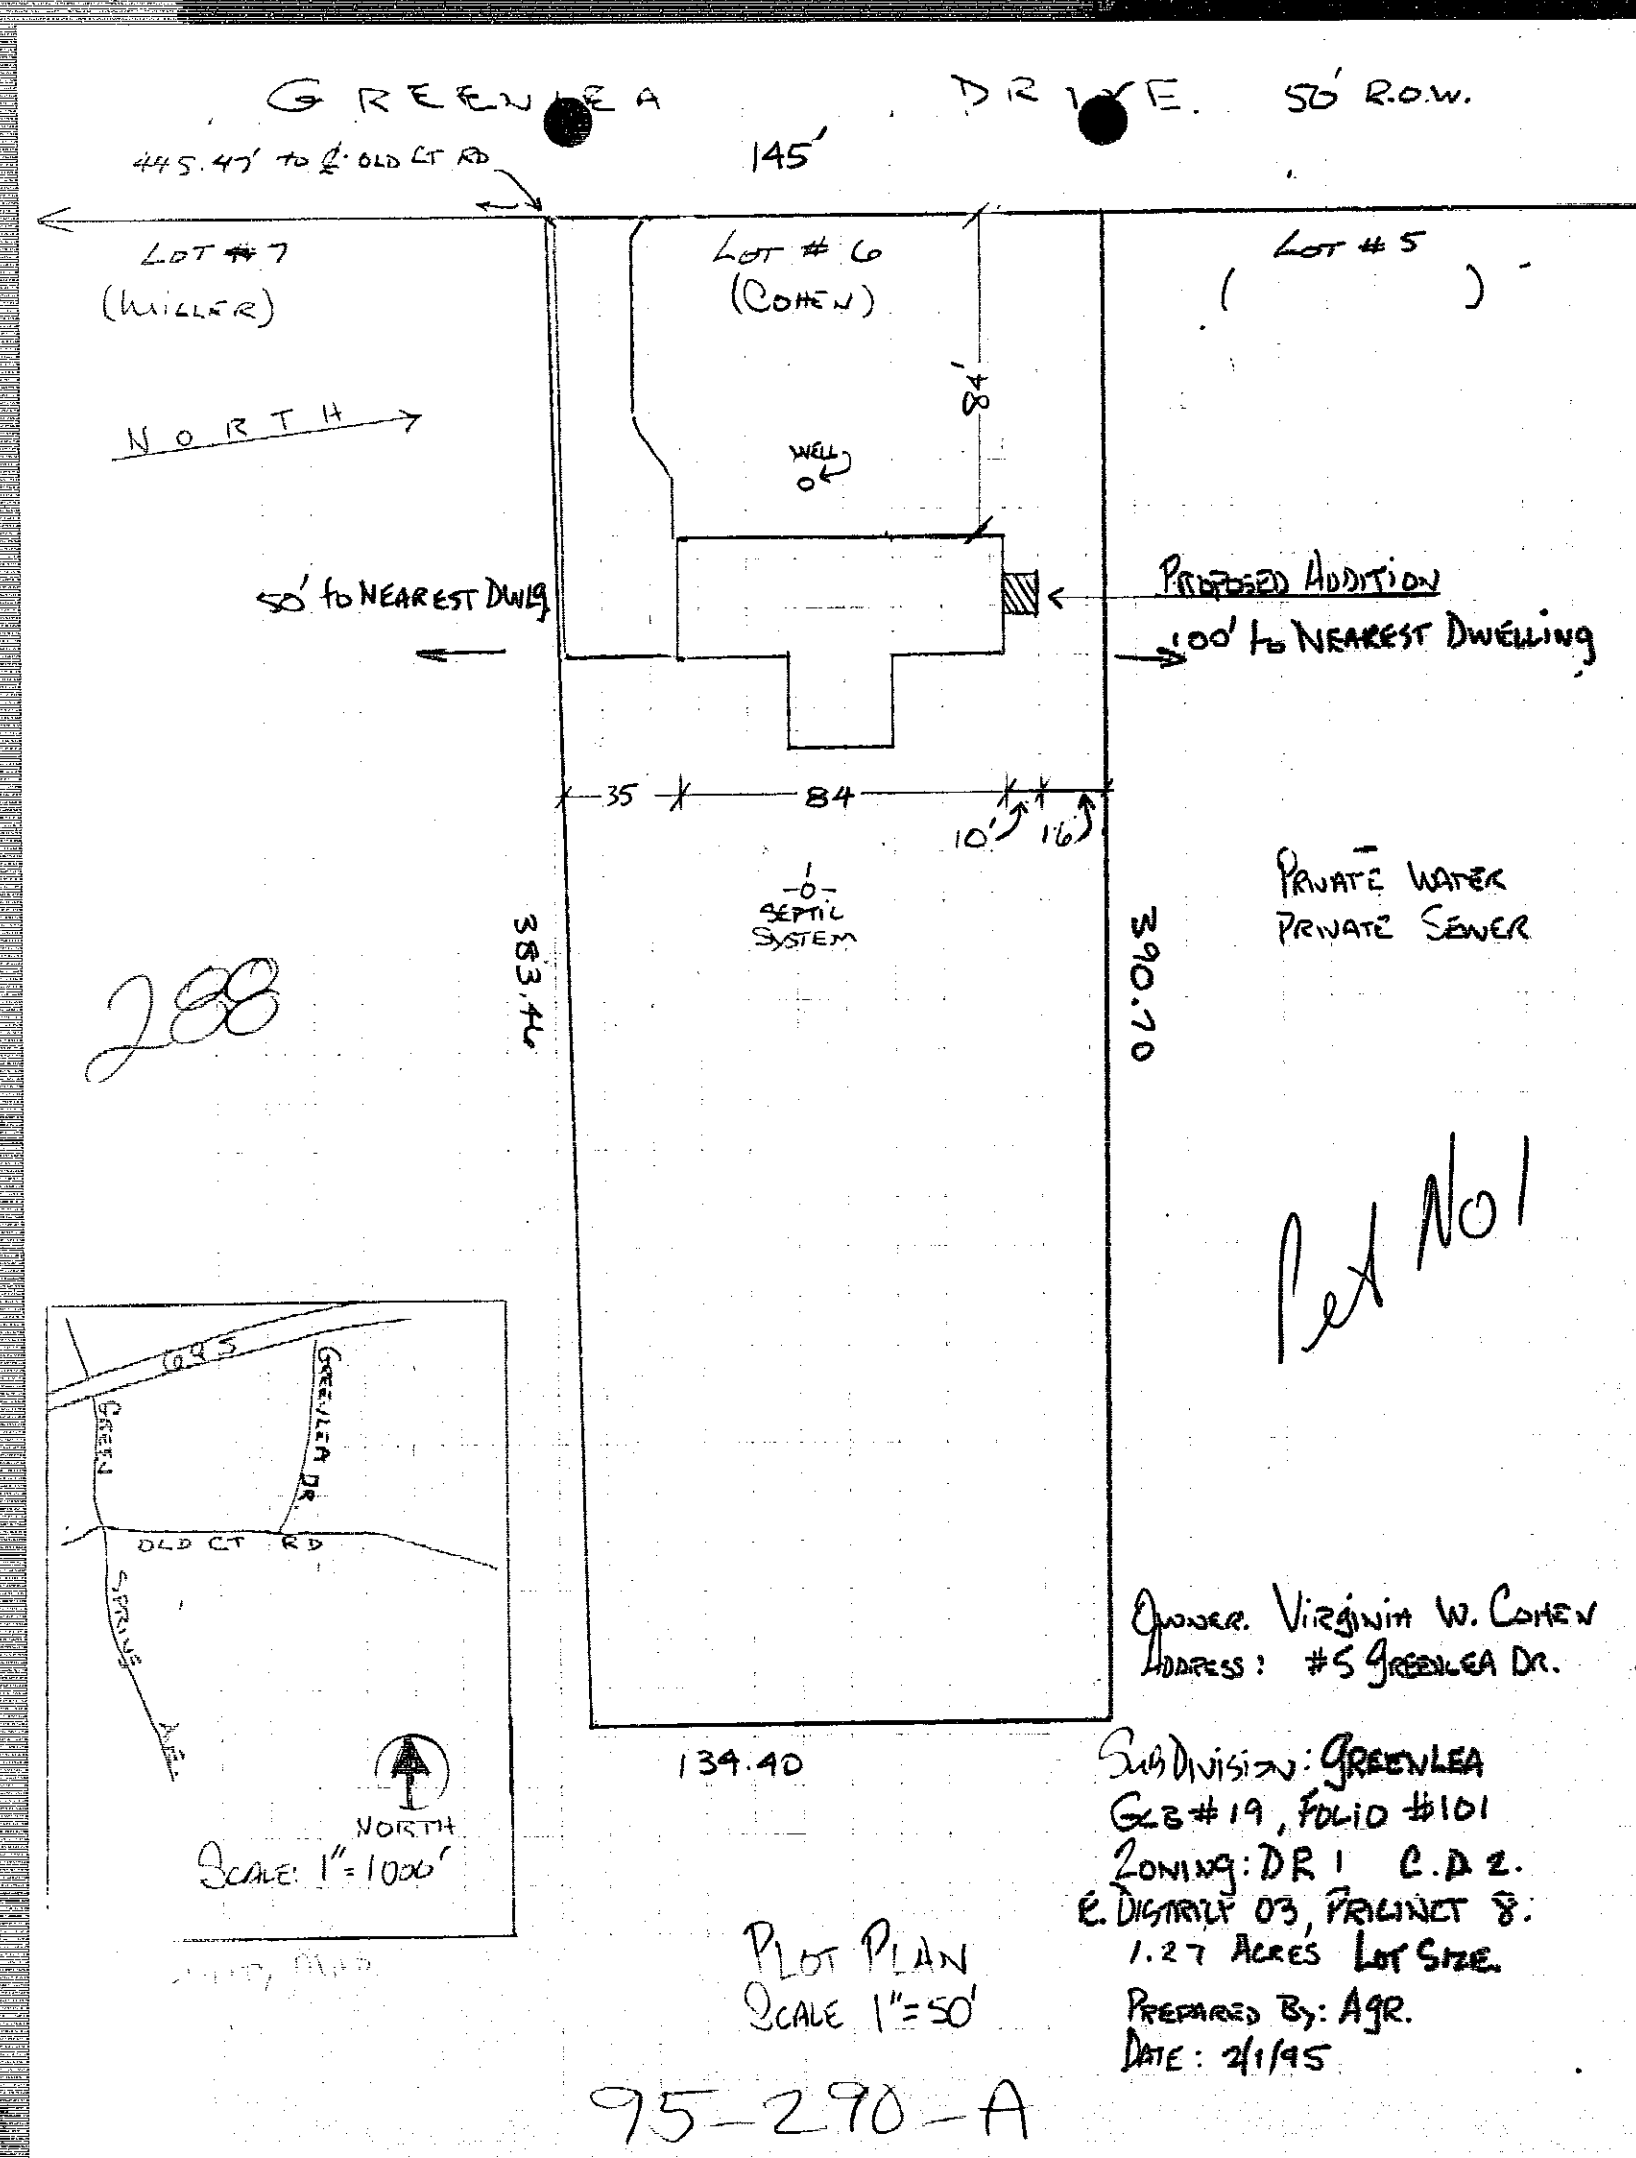 GREENLEA DRIVE. 50' R.O.W.
445.47' to ℄ OLD CT RD
145'
LOT #7
(MILLER)
LOT #6
(COHEN)
LOT #5
( )
NORTH
84'
WELL
50' to NEAREST DWLg
PROPOSED ADDITION
100' to NEAREST DWELLING
35
84
10'
16'
SEPTIC
SYSTEM
PRIVATE WATER
PRIVATE SEWER
383.46
390.70
288
Pet No 1
695
GREENLEA DR.
GREEN
OLD CT RD
SPRING
AVE.
NORTH
SCALE: 1"=1000'
134.40
OWNER. VIRGINIA W. COHEN
ADDRESS: #5 GREENLEA DR.
SUBDIVISION: GREENLEA
GLB #19, FOLIO #101
ZONING: DR 1 C.D 2.
E. DISTRICT 03, PRECINCT 8.
1.27 ACRES LOT SIZE.
PREPARED By: AGR.
DATE: 2/1/95
PLOT PLAN
SCALE 1"=50'
95-290-A